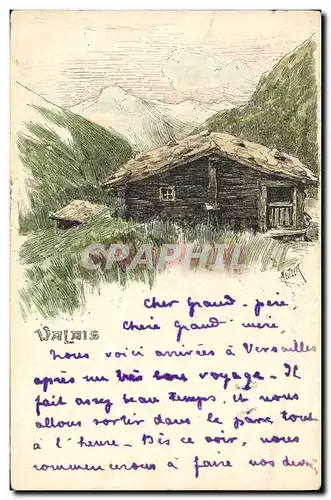 CPARAMA
MÜLLER
VALAIS
Cher Grand-père,
Chère Grand mère,
nous voici arrivées à Versailles
après un très bon voyage - Il
fait assez beau temps, et nous
allons sortir dans le parc tout
à l'heure - Dès ce soir, nous
commencerons à faire nos